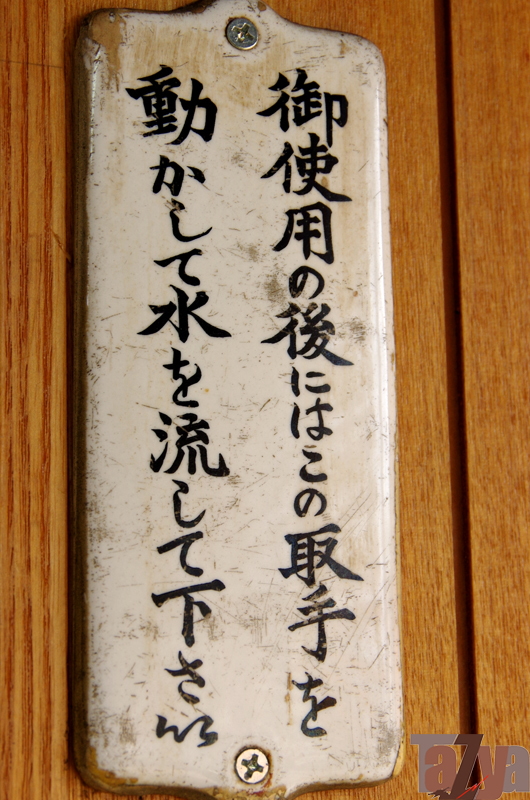 御使用の後にはこの取手を
動かして水を流して下さい
TaZya